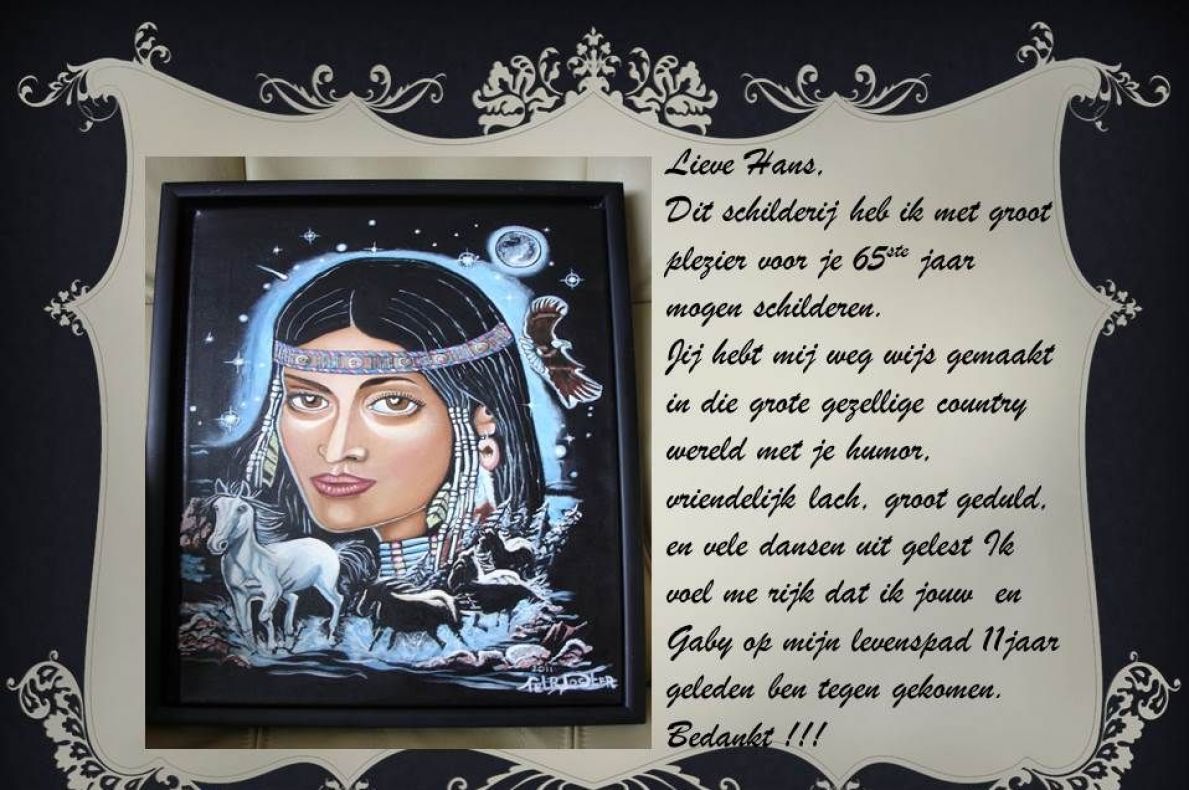 Lieve Hans,
Dit schilderij heb ik met groot
plezier voor je 65ste jaar
mogen schilderen.
Jij hebt mij weg wijs gemaakt
in die grote gezellige country
wereld met je humor,
vriendelijk lach, groot geduld,
en vele dansen uit gelest Ik
voel me rijk dat ik jouw en
Gaby op mijn levenspad 11jaar
geleden ben tegen gekomen.
Bedankt !!!
2011